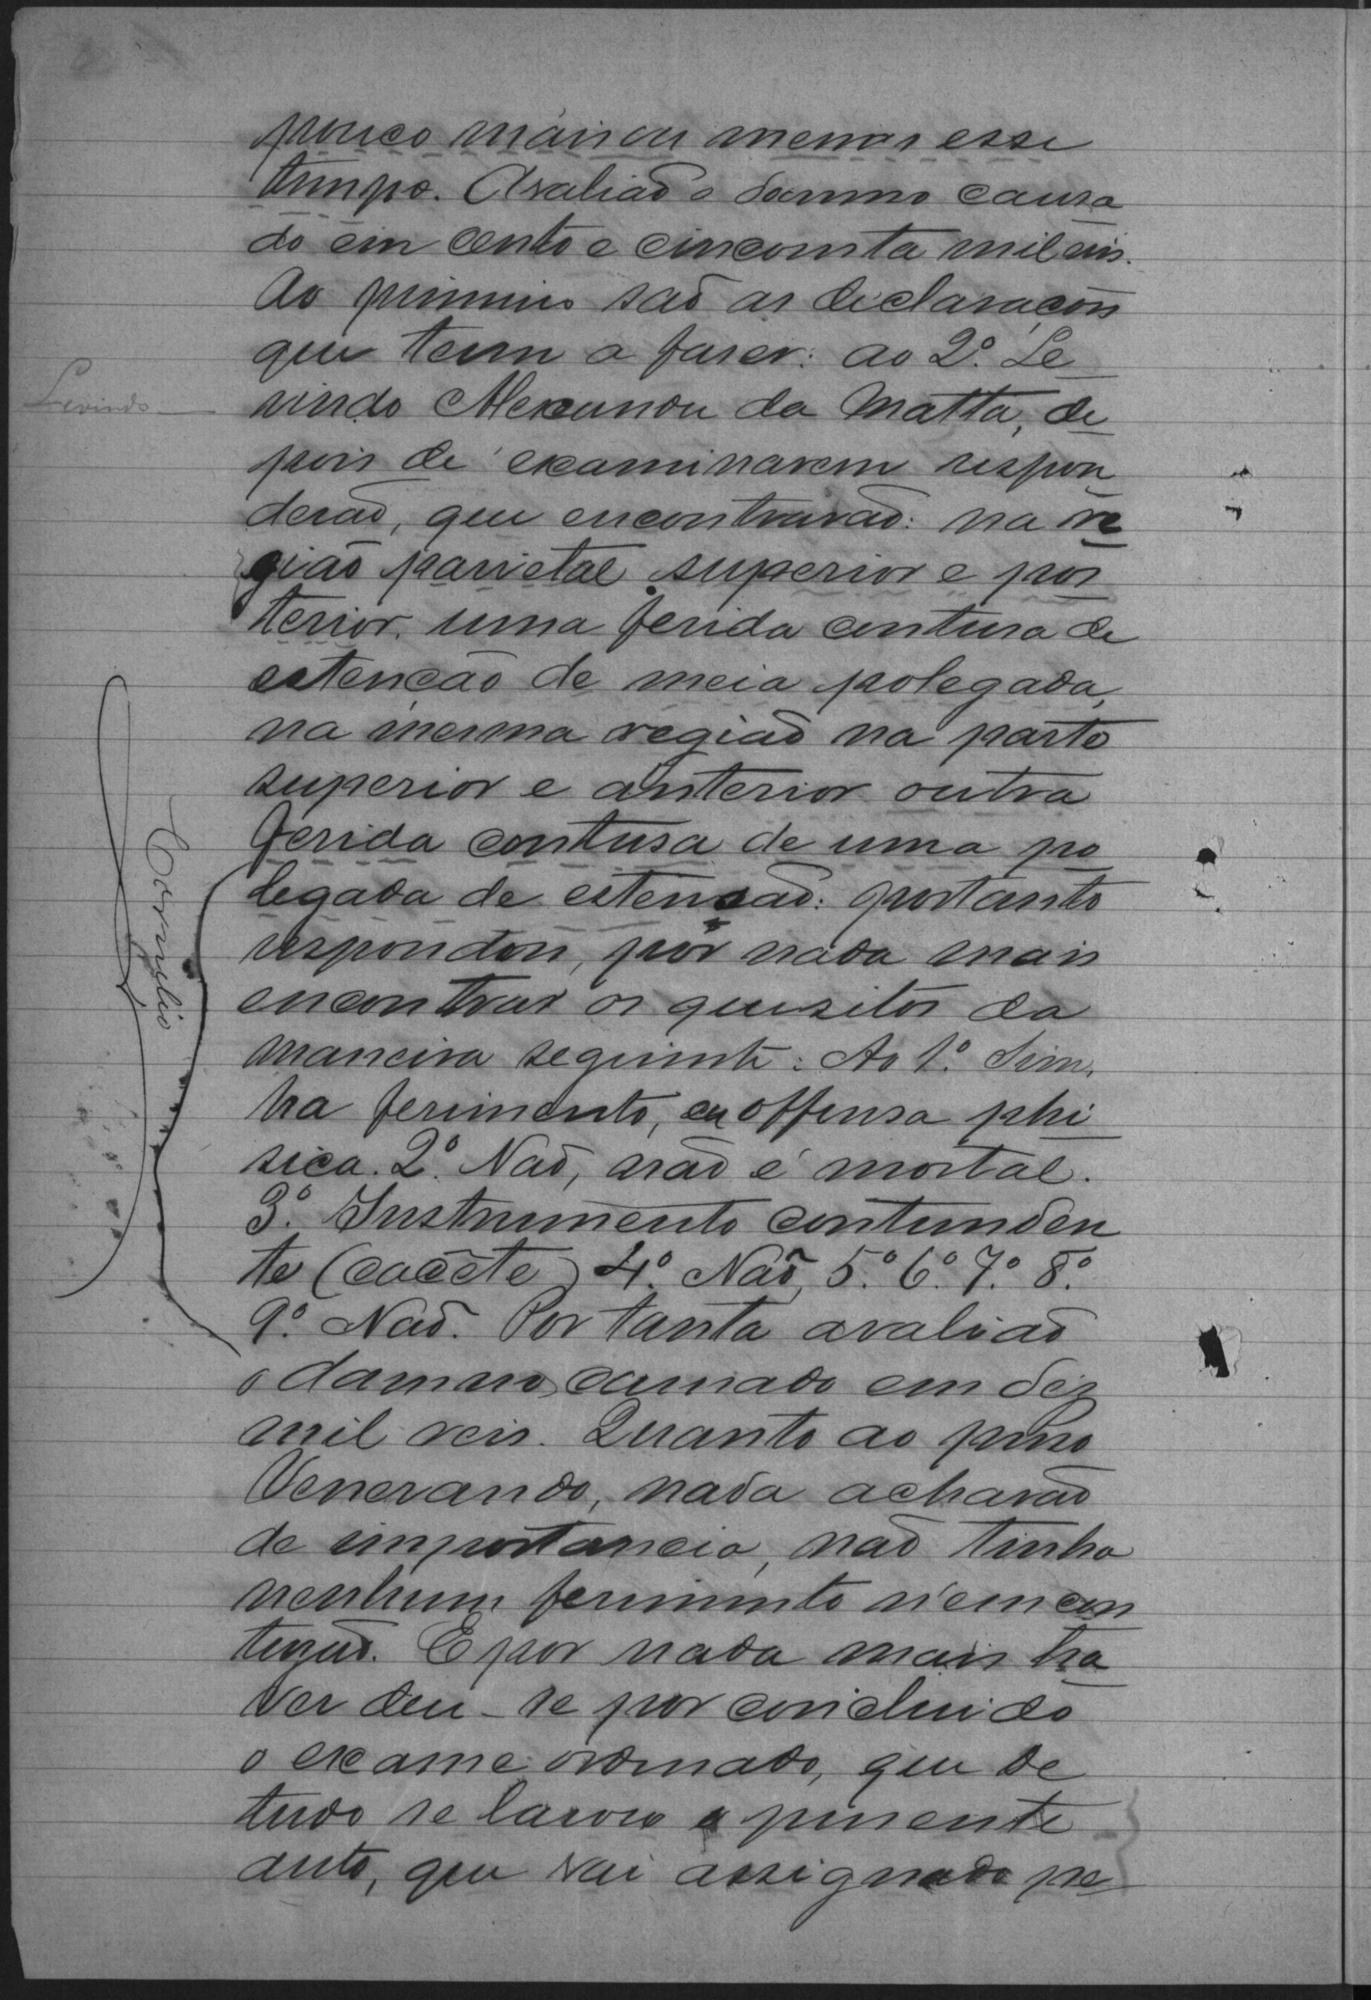 pouco mais ou menos esse
tempo. Avalião o damno causa
do em cento e cincoenta mil reis.
Ao primeiro são as declarações
que tem a faser: ao 2º. Le
vindo Alexandre da Matta, de
pois de examinarem respon
derão, que encontrarão: na re
gião parietal superior e pos
terior, uma ferida contusa de
estenção de meia polegada,
na mesma região na parte
superior e anterior outra
ferida contusa de uma po
legada de estensão: portanto
respondem, por nada mais
encontrar os quesitos da
maneira seguinte: Ao 1º. Sim,
ha ferimento, ou offensa phi
sica. 2º. Não, não é mortal.
3º. Instrumento contunden
te (cacête) 4º. Não, 5.º 6.º 7.º 8.º
9º. Não. Por tanto avalião
o damno causado em dez
mil reis. Quanto ao preso
Venerando, nada acharão
de importancia, não tinha
nenhum ferimento nem con
tusão. E por nada mais ha
ver deu-se por concluido
o exame ordenado, que de
tudo se lavrou o presente
auto, que vai assignado pe
Levindo
Cornelio